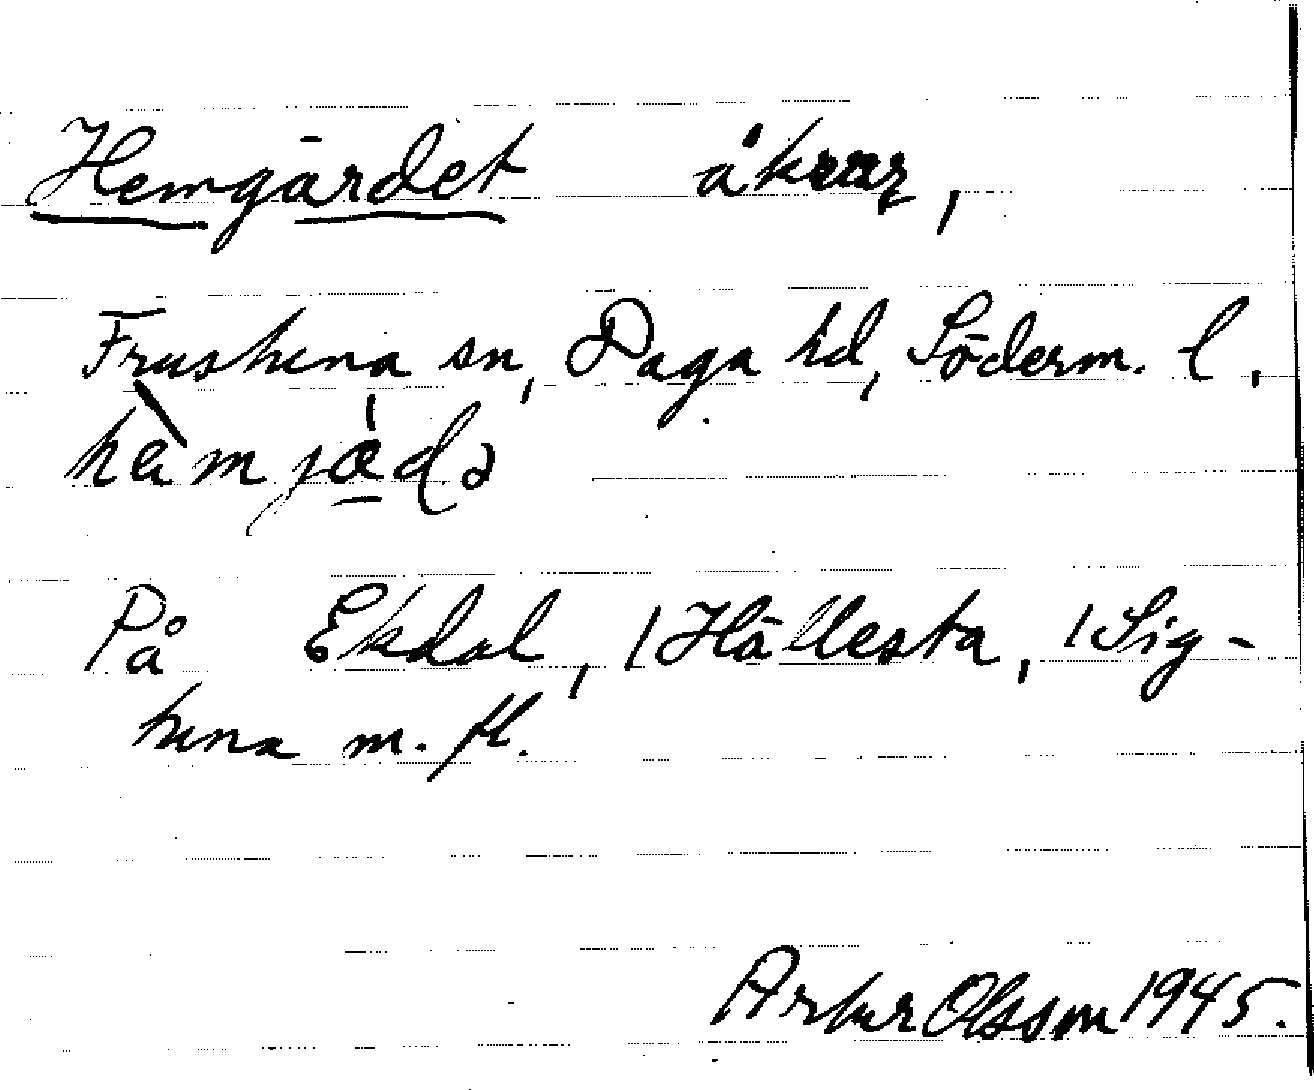 Hemgärdet åkrar,
Frustuna sn, Daga hd, Söderm. l.
hàmjǽ̱də
På Ekdal, /Hällesta, /Sig-
tuna m. fl.
Artur Olsson 1945.